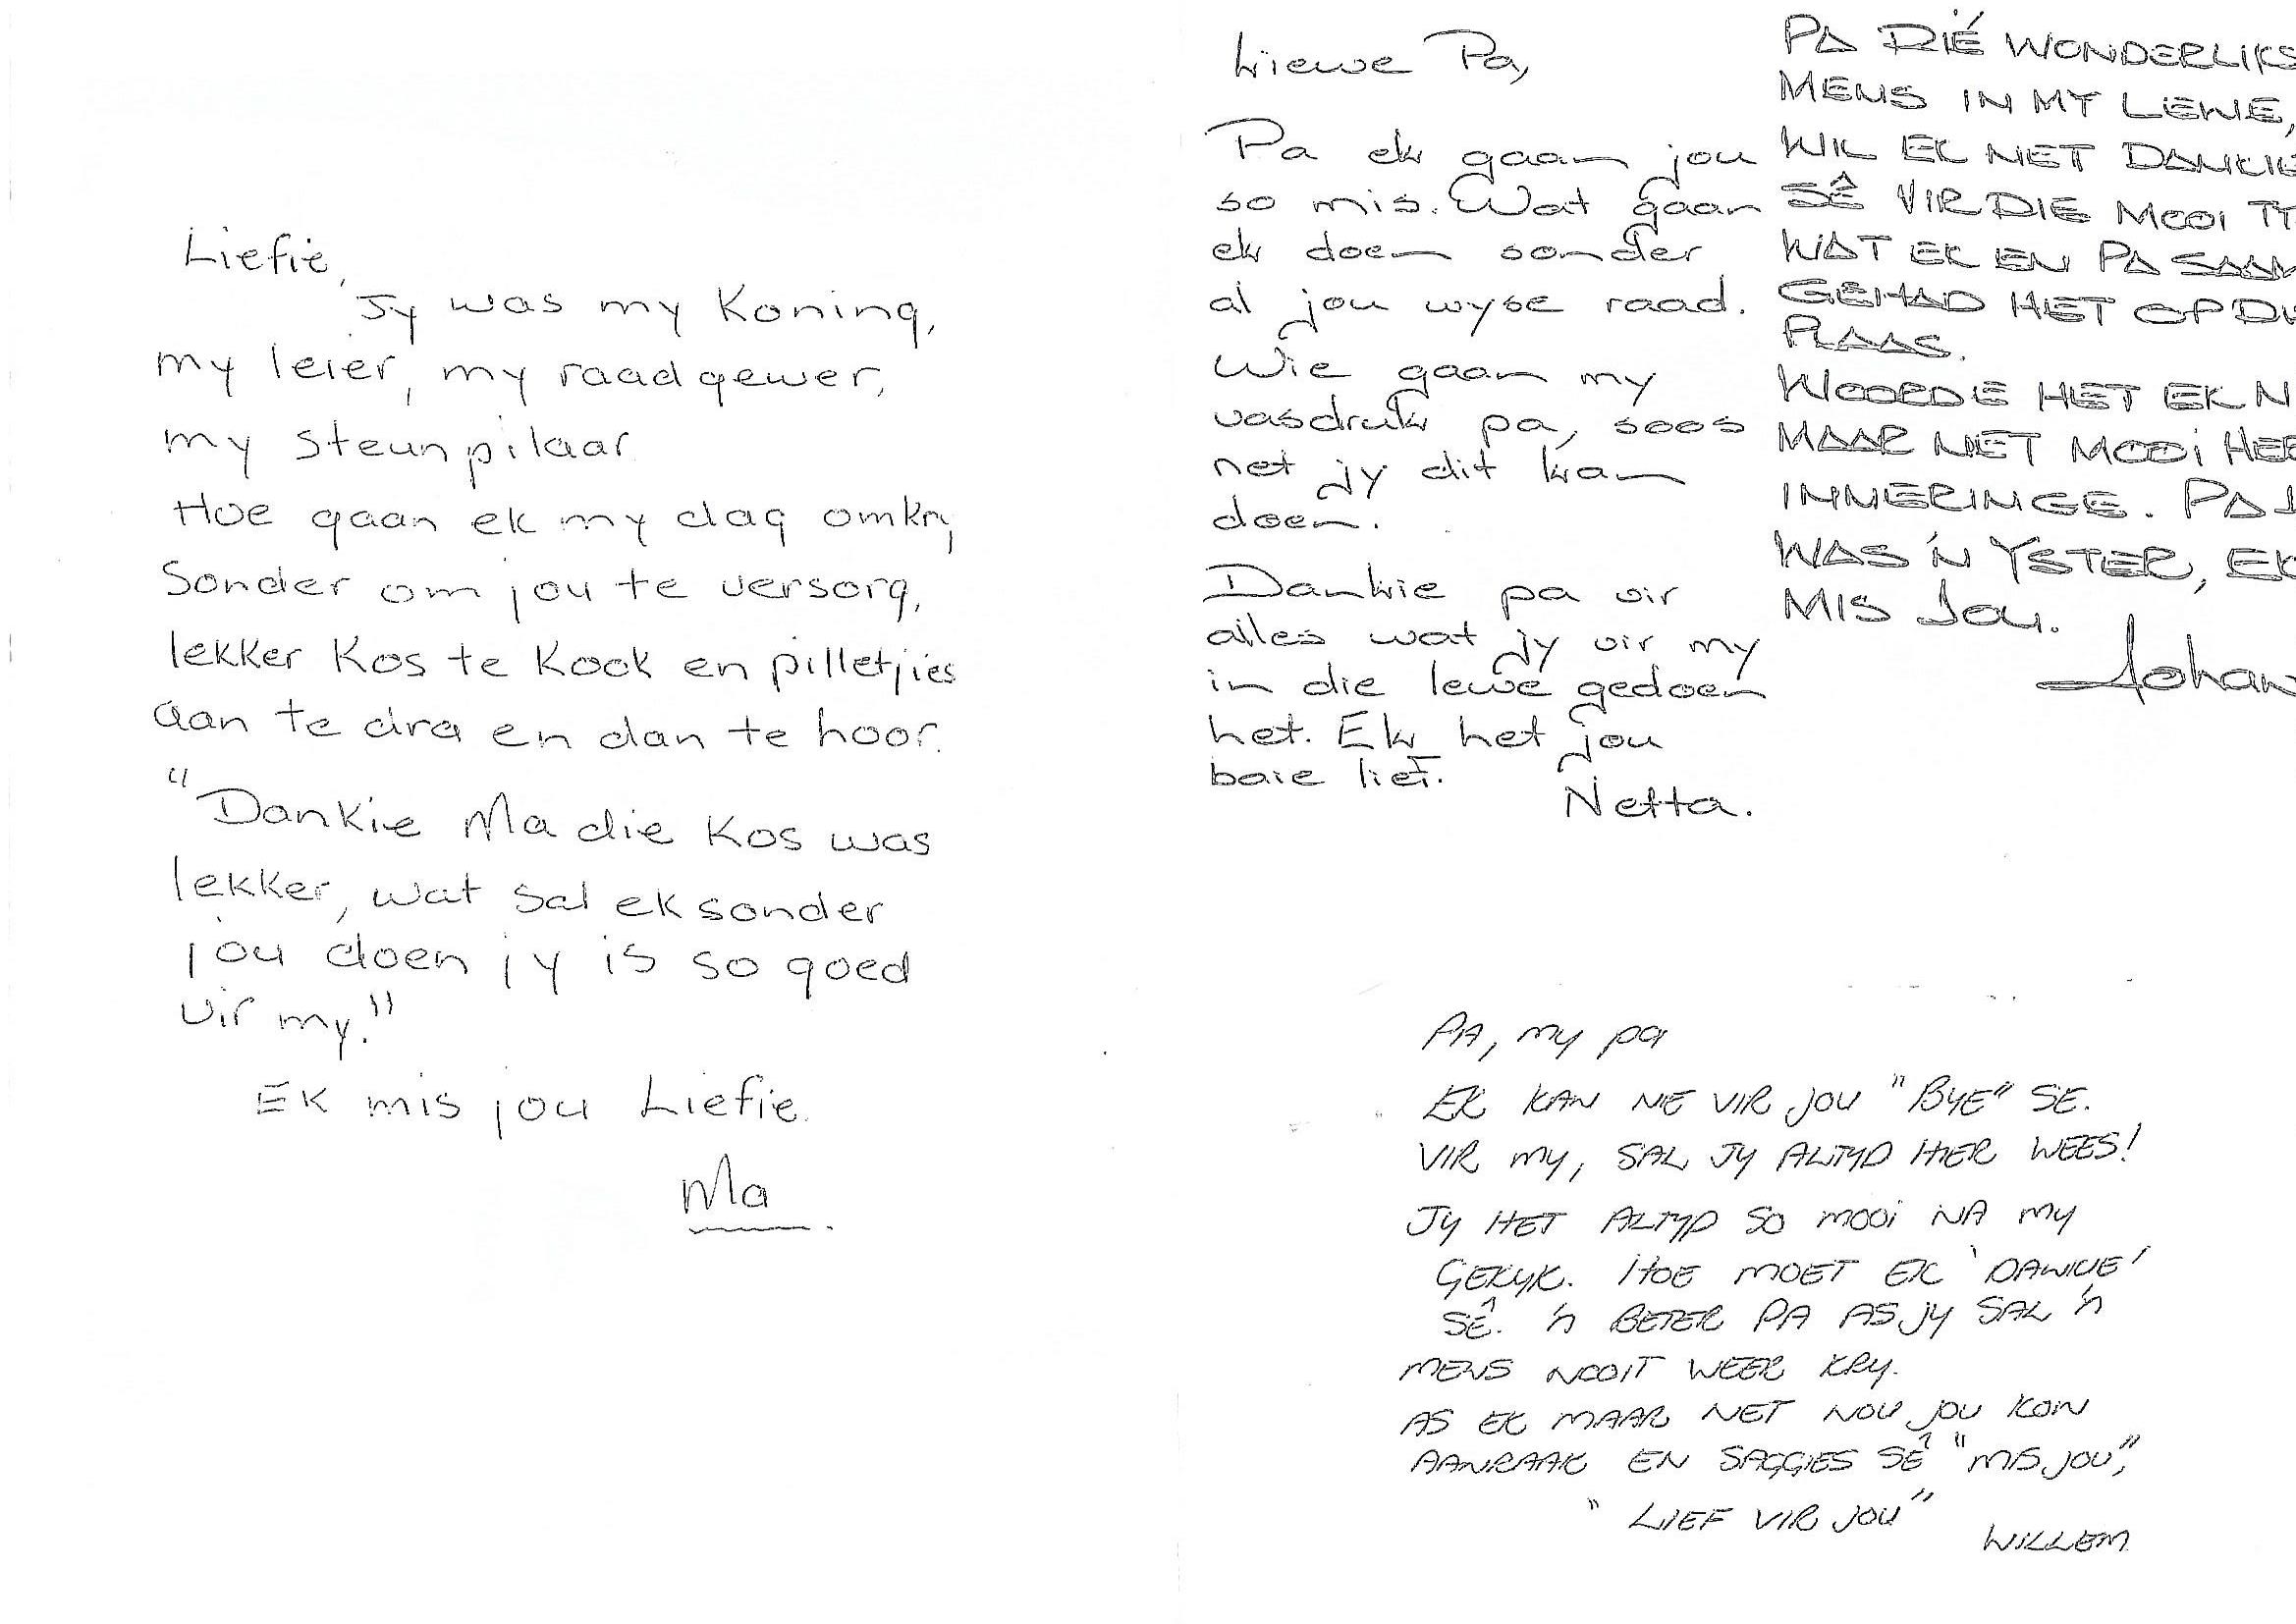 Liefie,
Jy was my Koning,
my leier, my raadgewer,
my steunpilaar
Hoe gaan ek my dag omkry,
Sonder om jou te versorg,
lekker Kos te Kook en pilletjies
aan te dra en dan te hoor.
"Dankie Ma die Kos was
lekker, wat sal ek sonder
jou doen jy is so goed
vir my."
Ek mis jou Liefie.
Ma
Liewe Pa,
Pa ek gaan jou
so mis. Wat gaan
ek doen sonder
al jou wyse raad.
Wie gaan my
vasdruk pa, soos
net jy dit kan
doen.
Dankie pa vir
alles wat jy vir my
in die lewe gedoen
het. Ek het jou
baie lief.
Netta.
PA DIÉ WONDERLIKS
MENS IN MY LEWE,
WIL EK NET DANKIE
SÊ VIR DIE MOOI TY
WAT EK EN PA SAAM
GEHAD HET OP DI
PLAAS.
WOORDE HET EK N
MAAR NET MOOI HER
INNERINGE. PA J
WAS 'N YSTER, EK
MIS JOU.
Johan
PA, my pa
EK KAN NIE VIR JOU "BYE" SE.
VIR MY, SAL JY ALTYD HIER WEES!
JY HET ALTYD SO MOOI NA MY
GEKYK. HOE MOET EK 'DANKIE'
SÊ. 'n BETER PA AS JY SAL 'n
MENS NOOIT WEER KRY.
AS EK MAAR NET NOU JOU KON
AANRAAK EN SAGGIES SÊ "MIS JOU",
"LIEF VIR JOU"
WILLEM